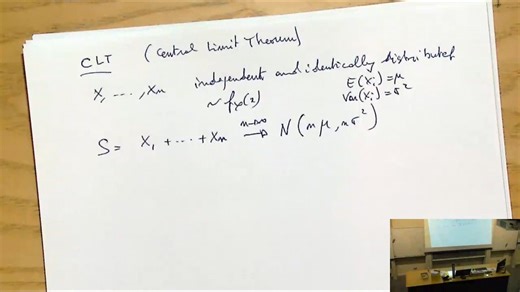 CLT (Central Limit Theorem)
X₁, ..., Xₙ independent and identically distributed
~ fₓ(x) E(Xᵢ) = μ
Var(Xᵢ) = σ²
S = X₁ + ... + Xₙ →(n→∞) N(nμ, nσ²)